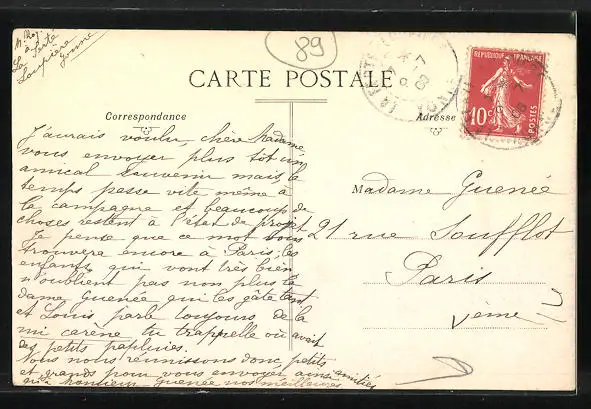 La Ferté
Loupière
Yonne
89
CARTE POSTALE
Correspondance
Adresse
REPUBLIQUE FRANÇAISE
10c
POSTES
J'aurais voulu, chère Madame
vous envoyer plus tôt un
amical souvenir mais le
temps passe vite même à
la campagne et beaucoup de
choses restent à l'état de projet
Je pense que ce mot vous
trouvera encore à Paris; les
enfants qui vont très bien
n'oublient pas non plus la
dame Guenée qui les gâte tant
et Louis parle toujours de la
mi carène tu trappelle où avait
des petits papluies.
Nous nous réunissons donc petits
et grands pour vous envoyer ainsi
qu'à monsieur Guenée nos meilleures amitiés
Madame Guenée
21 rue Soufflot
Paris
Vème